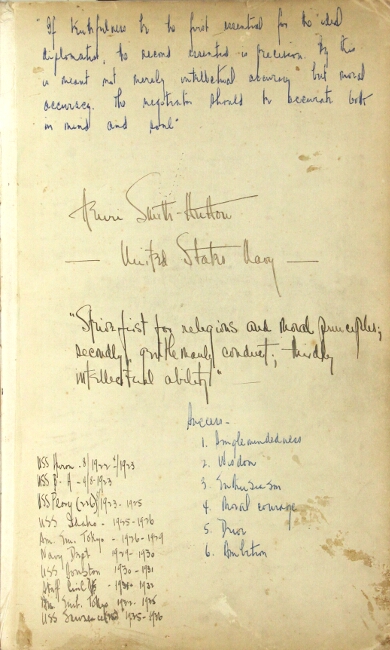 "If truthfulness be the first essential for the ideal
diplomatist, the second essential is precision. By this
is meant not merely intellectual accuracy but moral
accuracy. The negotiator should be accurate both
in mind and soul"
Smith-Hutton
— United States Navy —
"Strive first for religious and moral principles;
secondly, gentlemanly conduct; thirdly
intellectual ability"
Success -
1. Singlemindedness
2. Wisdom
3. Enthusiasm
4. Moral courage
5. Drive
6. Ambition
USS Huron 1922 1923
USS 1923
USS Peary (226) 1923 - 1925
USS Idaho - 1925-1926
Am. Em. Tokyo - 1926-1929
Navy Dept 1929-1930
USS Houston 1930-1931
Staff 1931
Am. Emb. Tokyo 1932 - 1935
USS Lawrence 1935-1936